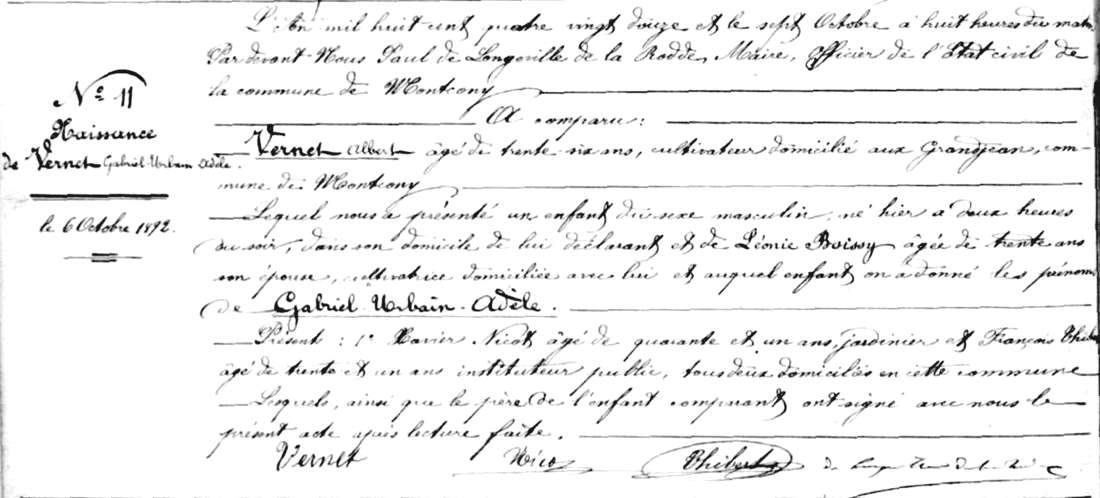 N° 11
Naissance
de Vernet Gabriel Urbain Adèle.
le 6 Octobre 1892.
L'An mil huit cent quatre vingt douze et le sept Octobre à huit heures du matin
Par devant Nous Paul de Longeville de la Rodde, Maire, Officier de l'Etat civil de
la commune de Montcony
A comparu :
Vernet Albert âgé de trente six ans, cultivateur domicilié aux Grandjean, com-
mune de Montcony
Lequel nous a présenté un enfant du sexe masculin, né hier à deux heures
du soir, dans son domicile de lui déclarant et de Léonie Boissy âgée de trente ans
son épouse, cultivatrice domiciliée avec lui et auquel enfant on a donné les prénoms
de Gabriel Urbain Adèle.
Présents : 1° Xavier Nicot âgé de quarante et un ans, jardinier et François Thibert
âgé de trente et un ans instituteur public, tous deux domiciliés en cette commune
Lesquels, ainsi que le père de l'enfant comparant ont signé avec nous le
présent acte après lecture faite.
Vernet Nicot Thibert